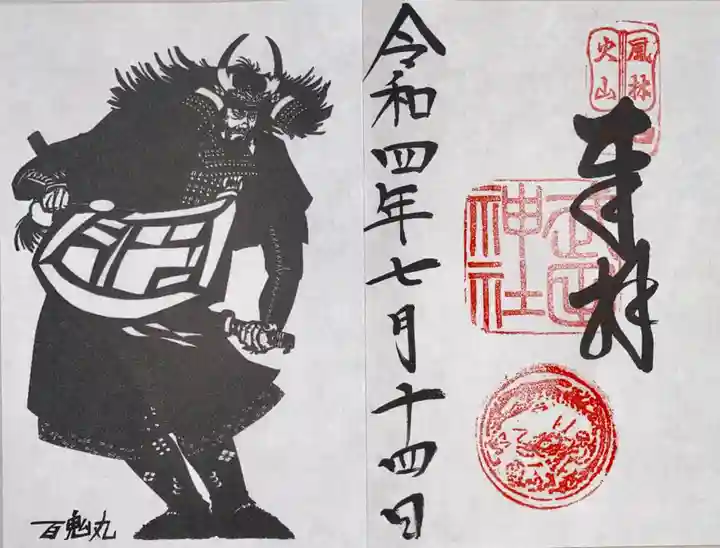 風林
火山
奉拝
神社
令和四年七月十四日
百鬼丸